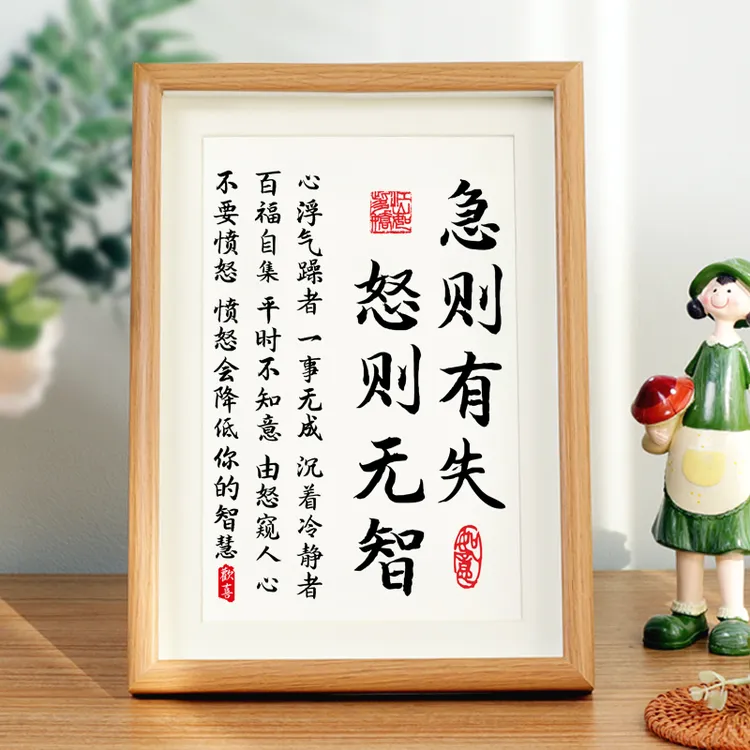 急则有失
怒则无智
心浮气躁者 一事无成 沉着冷静者
百福自集 平时不知意 由怒窥人心
不要愤怒 愤怒会降低你的智慧
如意
歡喜